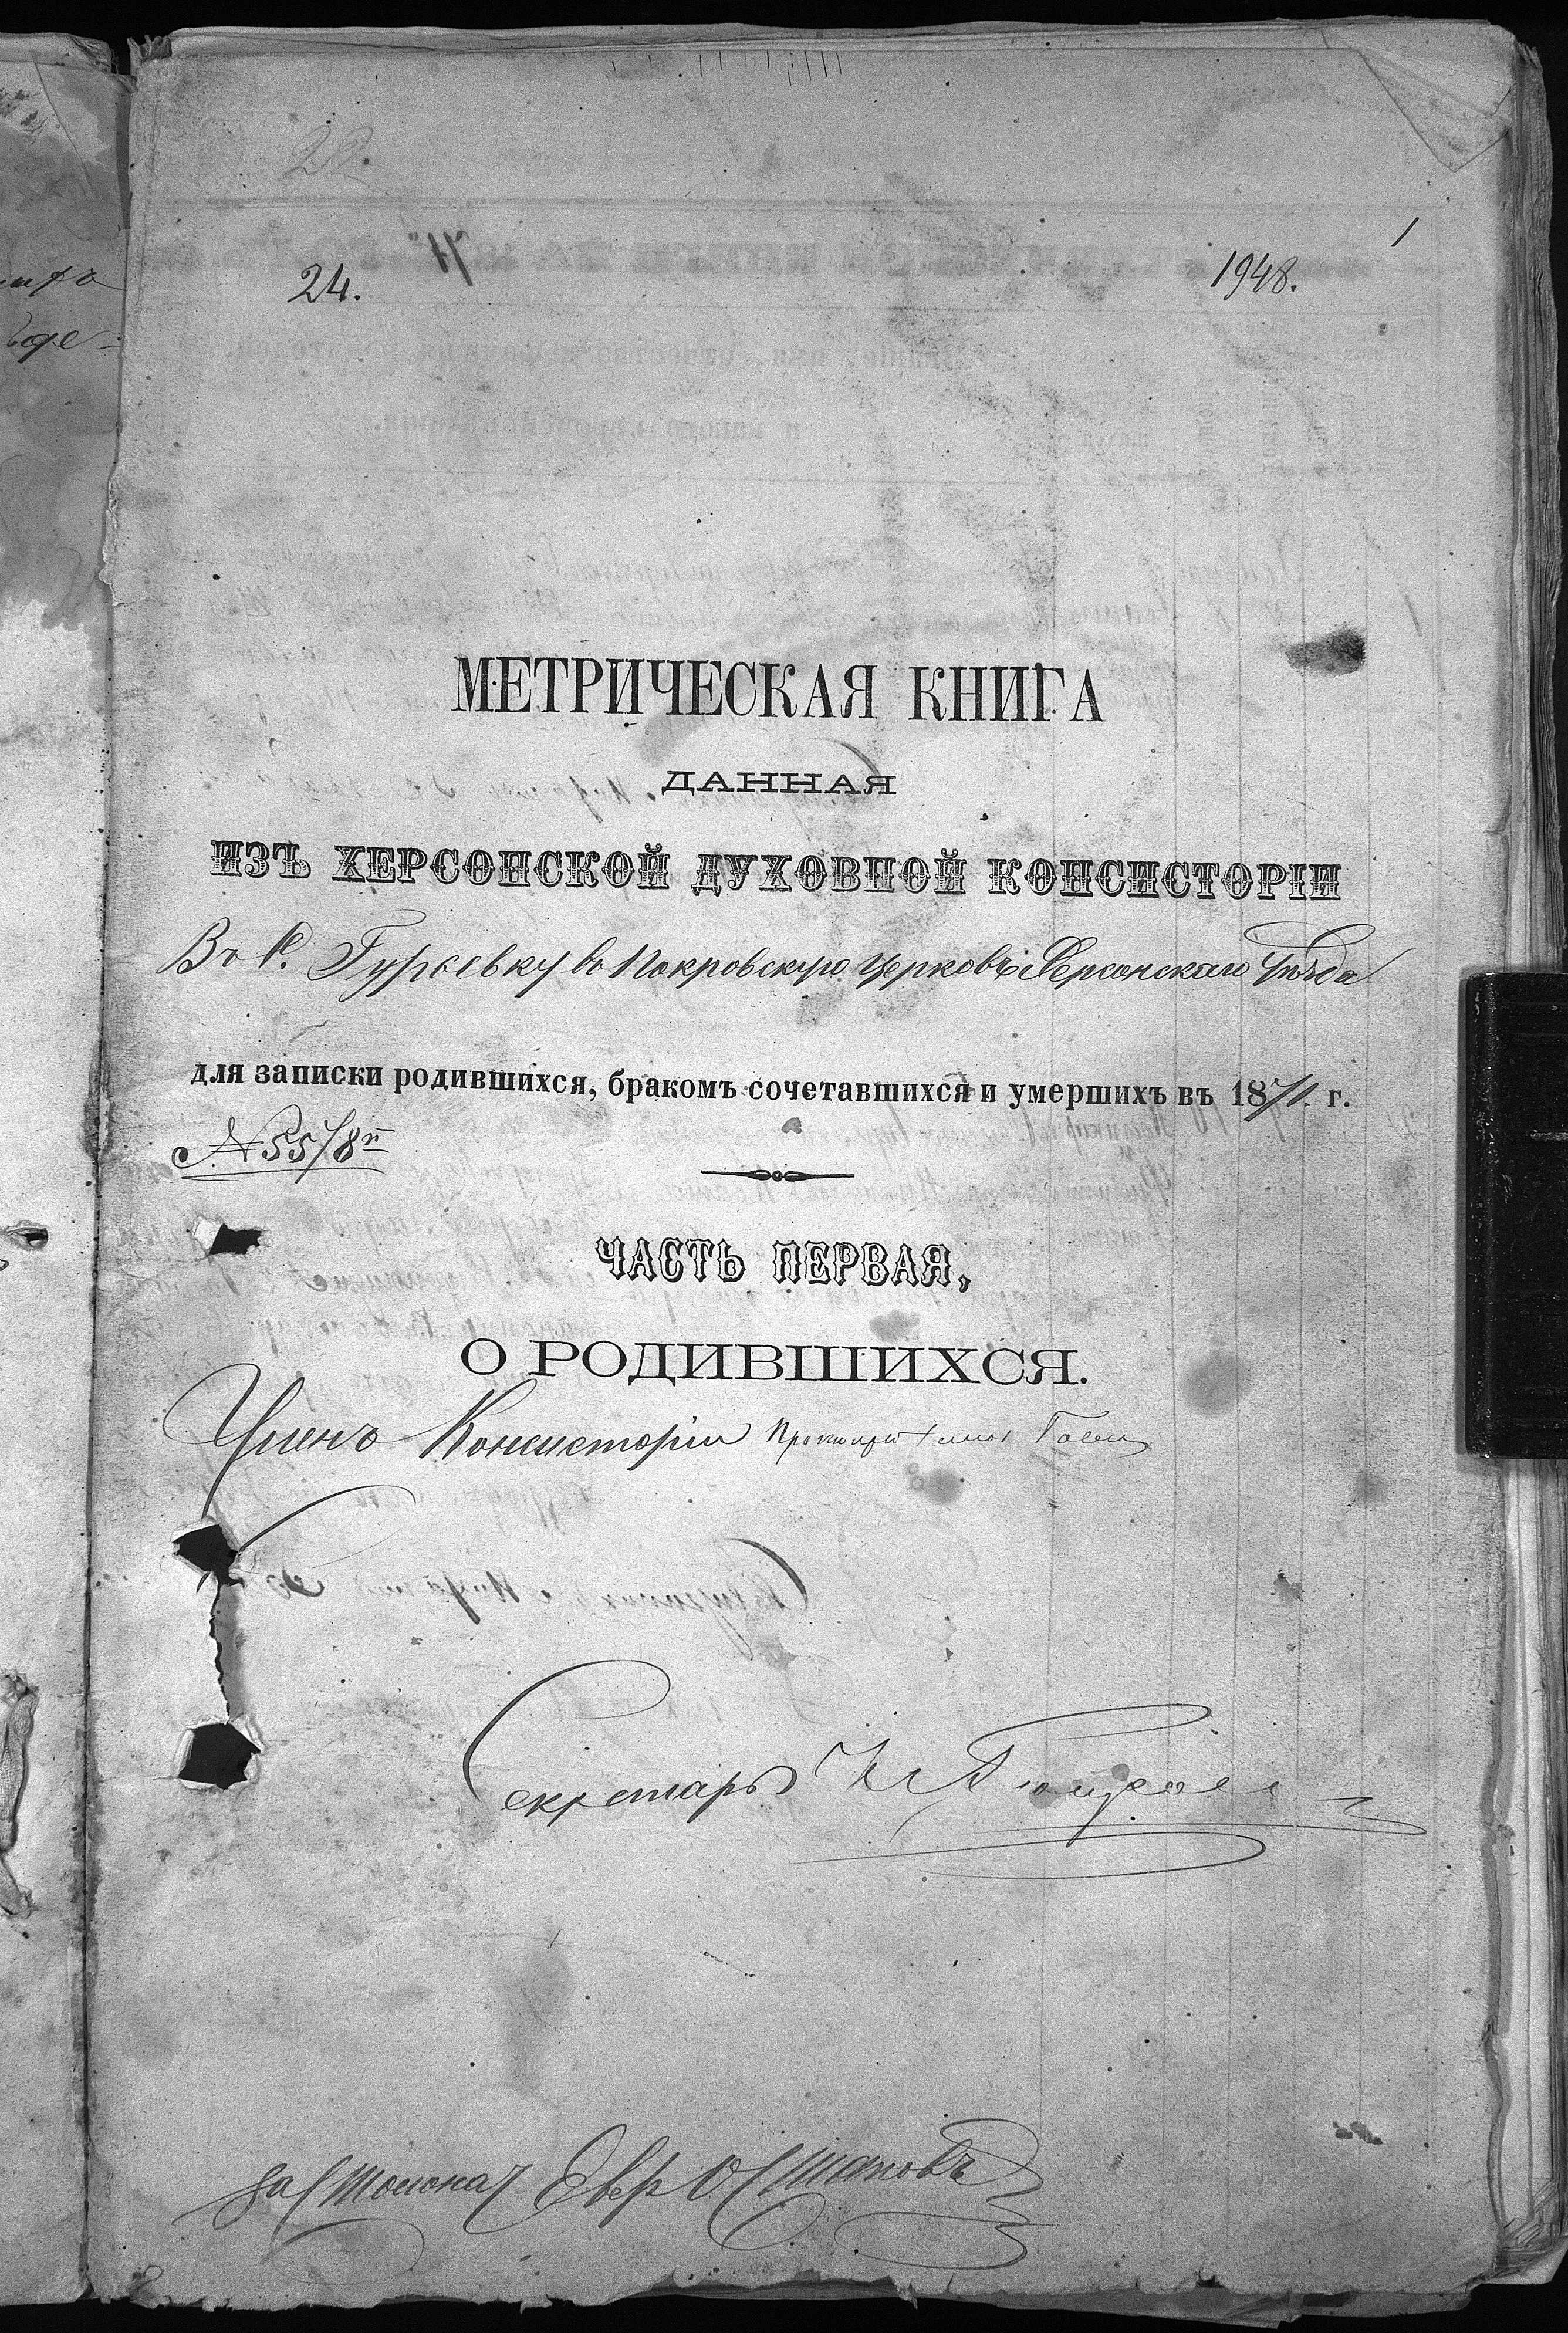 22.
1
24.
1948.
МЕТРИЧЕСКАЯ КНИГА
ДАННАЯ
ИЗЪ ХЕРСОНСКОЙ ДУХОВНОЙ КОНСИСТОРІИ
Въ С. Гурьевку во Покровскую Церковь Херсонскаго Уѣзда
для записки родившихся, бракомъ сочетавшихся и умершихъ въ 1871. г.
№ 55/8
ЧАСТЬ ПЕРВАЯ,
О РОДИВШИХСЯ.
Членъ Консисторіи
Секретарь
За Столонач Евр Осташовъ